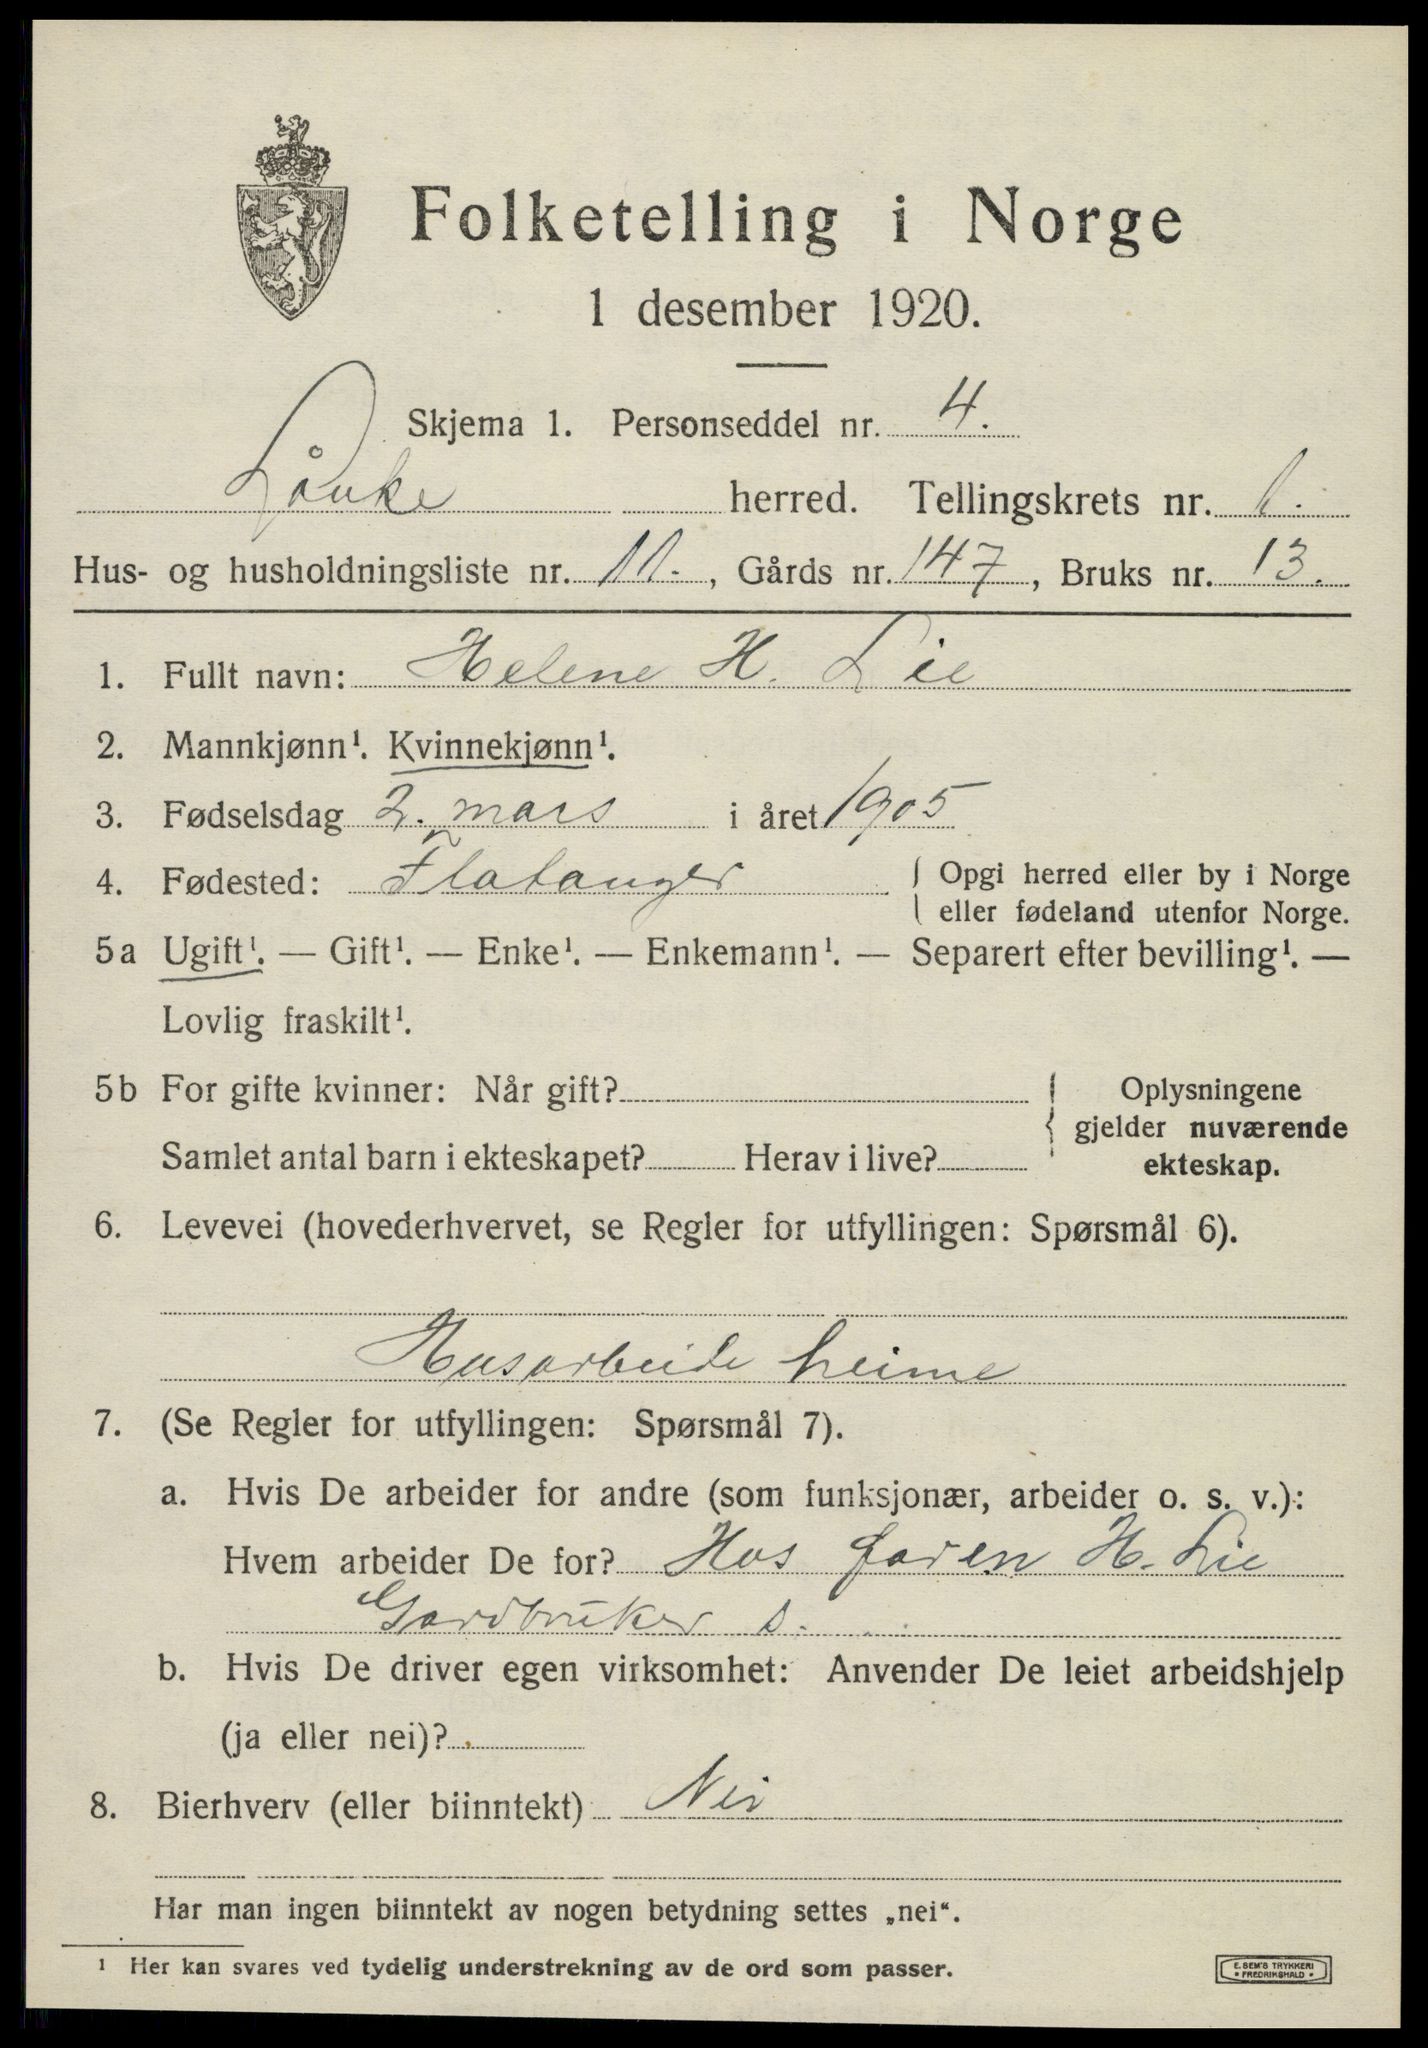 Folketelling i Norge
1 desember 1920.
Skjema 1. Personseddel nr. 4.
Lånke herred. Tellingskrets nr. 1.
Hus- og husholdningsliste nr. 11. , Gårds nr. 147 , Bruks nr. 13.
1. Fullt navn: Helene H. Lie
2. Mannkjønn¹. Kvinnekjønn¹.
3. Fødselsdag 2. mars i året 1905
4. Fødested: Flatanger { Opgi herred eller by i Norge
eller fødeland utenfor Norge.
5a Ugift¹. — Gift¹. — Enke¹. — Enkemann¹. — Separert efter bevilling¹. —
Lovlig fraskilt¹.
5b For gifte kvinner: Når gift? { Oplysningene
gjelder nuværende
Samlet antal barn i ekteskapet? Herav i live? ekteskap.
6. Levevei (hovederhvervet, se Regler for utfyllingen: Spørsmål 6).
Husarbeide heime
7. (Se Regler for utfyllingen: Spørsmål 7).
a. Hvis De arbeider for andre (som funksjonær, arbeider o. s. v.):
Hvem arbeider De for? Hos faren H. Lie
Gardbruker s.
b. Hvis De driver egen virksomhet: Anvender De leiet arbeidshjelp
(ja eller nei)?
8. Bierhverv (eller biinntekt) Nei
Har man ingen biinntekt av nogen betydning settes „nei“.
¹ Her kan svares ved tydelig understrekning av de ord som passer.
E. SEM'S TRYKKERI
• FREDRIKSHALD •